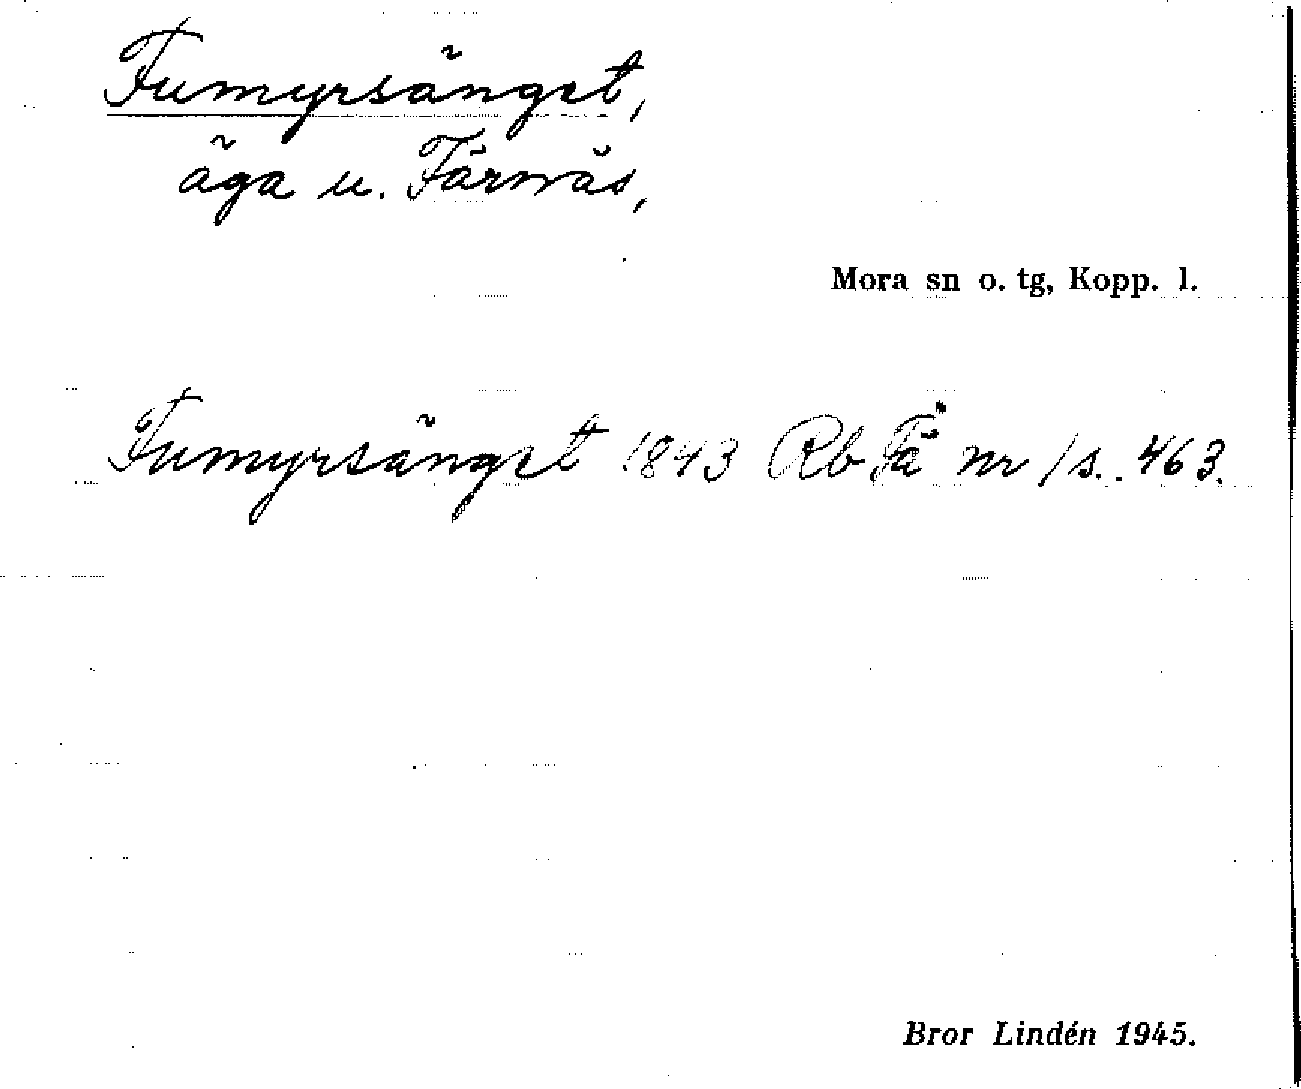 Fumyrsänget,
äga u. Färnäs,
Mora sn o. tg, Kopp. l.
Fumyrsänget 1843 Rb Fä nr 1 s. 463.
Bror Lindén 1945.